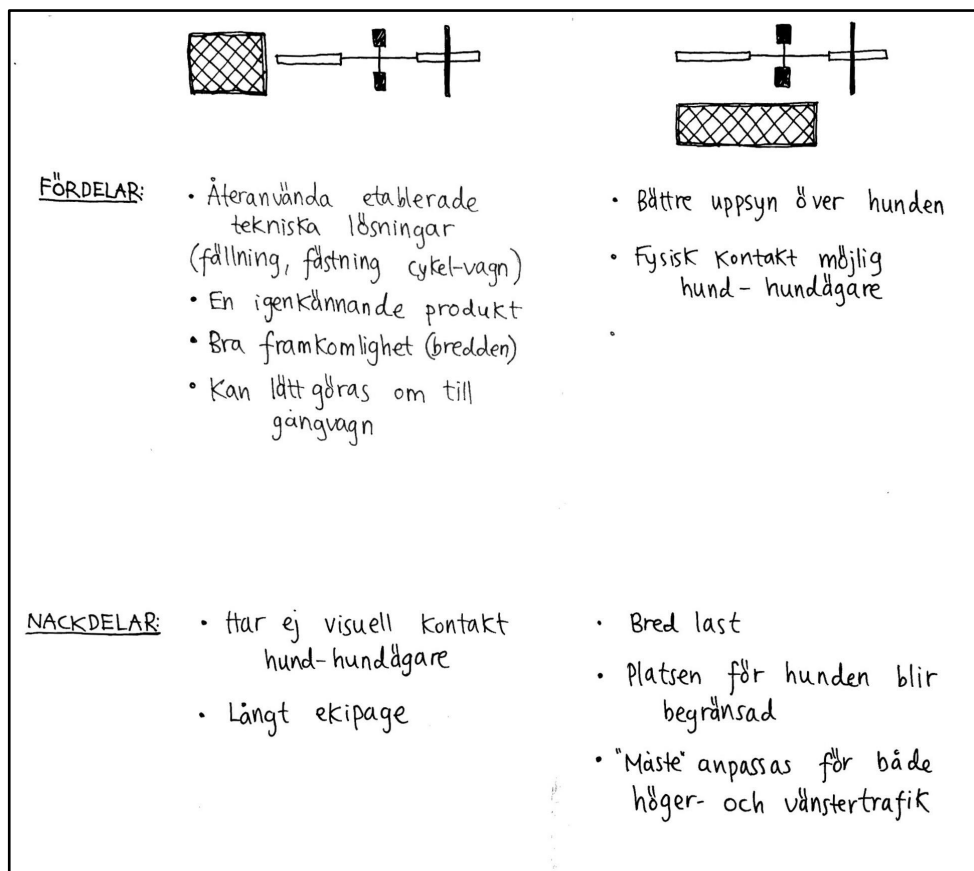 FÖRDELAR:
• Återanvända etablerade
tekniska lösningar
(fällning, fästning cykel-vagn)
• En igenkännande produkt
• Bra framkomlighet (bredden)
• Kan lätt göras om till
gångvagn
• Bättre uppsyn över hunden
• Fysisk kontakt möjlig
hund-hundägare
•
NACKDELAR:
• Har ej visuell kontakt
hund-hundägare
• Långt ekipage
• Bred last
• Platsen för hunden blir
begränsad
• "Måste" anpassas för både
höger- och vänstertrafik